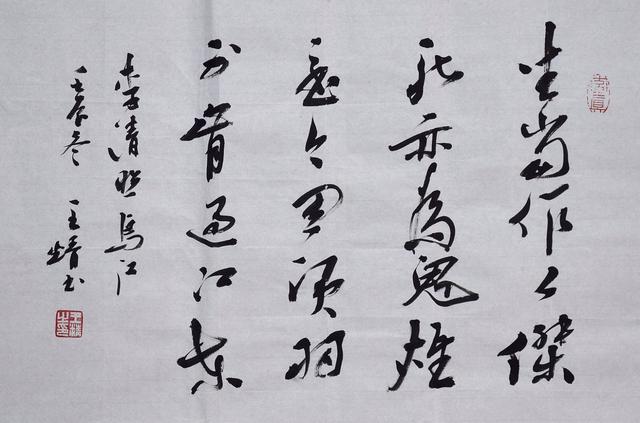 生当作人傑
死亦為鬼雄
至今思項羽
不肯過江東
李清照烏江
壬辰冬 王靖书